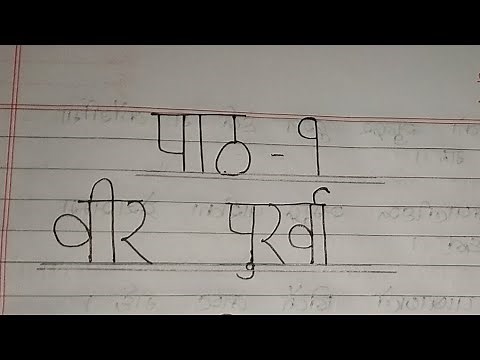 पाठ - १
वीर पुर्खा